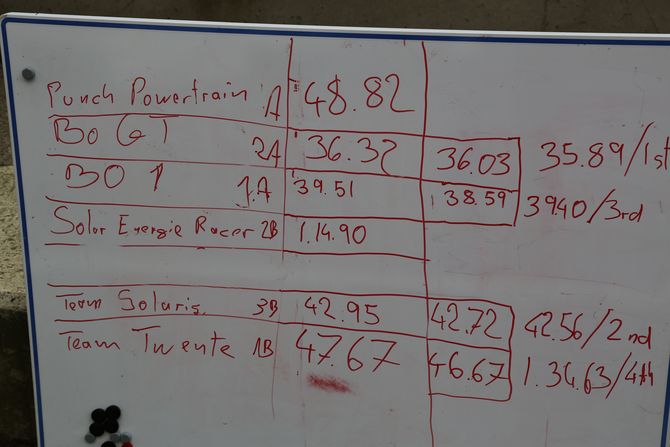 Punch Powertrain .A 48.82
Bo GT 2A 36.32 36.03 35.89/1st
BO 1 1.A 39.51 38.59 39.40/3rd
Solar Energie Racer 2B 1.14.90
Team Solaris. 3B 42.95 42.72 42.56/2nd
Team Twente 1B 47.67 46.67 1.34.63/4th